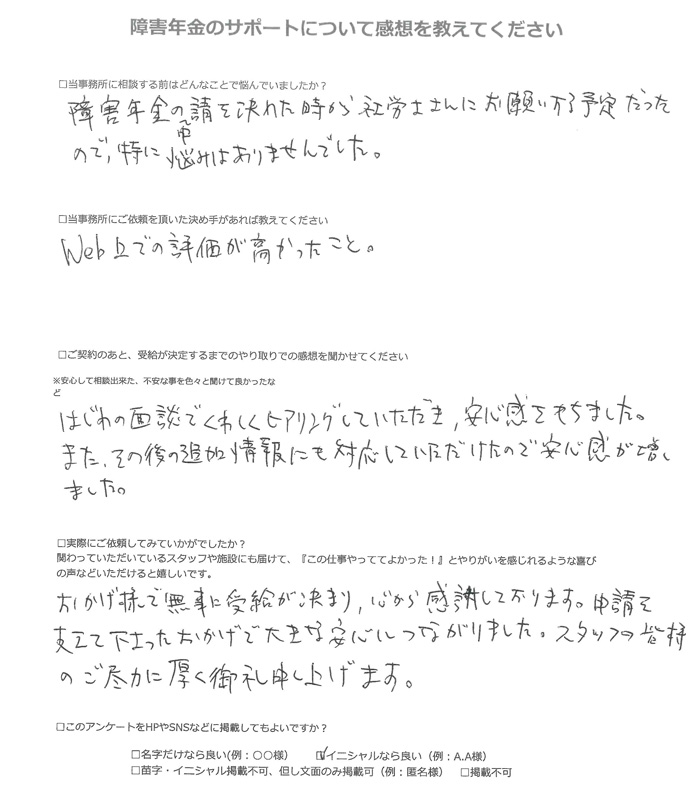 障害年金のサポートについて感想を教えてください
□当事務所に相談する前はどんなことで悩んでいましたか？
障害年金の申請を決めた時から社労士さんにお願いする予定だった
ので，特に悩みはありませんでした。
□当事務所にご依頼を頂いた決め手があれば教えてください
Web上での評価が高かったこと。
□ご契約のあと、受給が決定するまでのやり取りでの感想を聞かせてください
※安心して相談出来た、不安な事を色々と聞けて良かったな
ど
はじめの面談でくわしくヒアリングしていただき，安心感をもちました。
また、その後の追加情報にも対応していただけたので安心感が増し
ました。
□実際にご依頼してみていかがでしたか？
関わっていただいているスタッフや施設にも届けて、『この仕事やっててよかった！』とやりがいを感じれるような喜び
の声などいただけると嬉しいです。
おかげ様で無事に受給が決まり，心から感謝しております。申請を
支えて下さったおかげで大きな安心につながりました。スタッフの皆様
のご尽力に厚く御礼申し上げます。
□このアンケートをHPやSNSなどに掲載してもよいですか？
□名字だけなら良い(例：〇〇様） ☑イニシャルなら良い（例：A.A様）
□苗字・イニシャル掲載不可、但し文面のみ掲載可（例：匿名様） □掲載不可